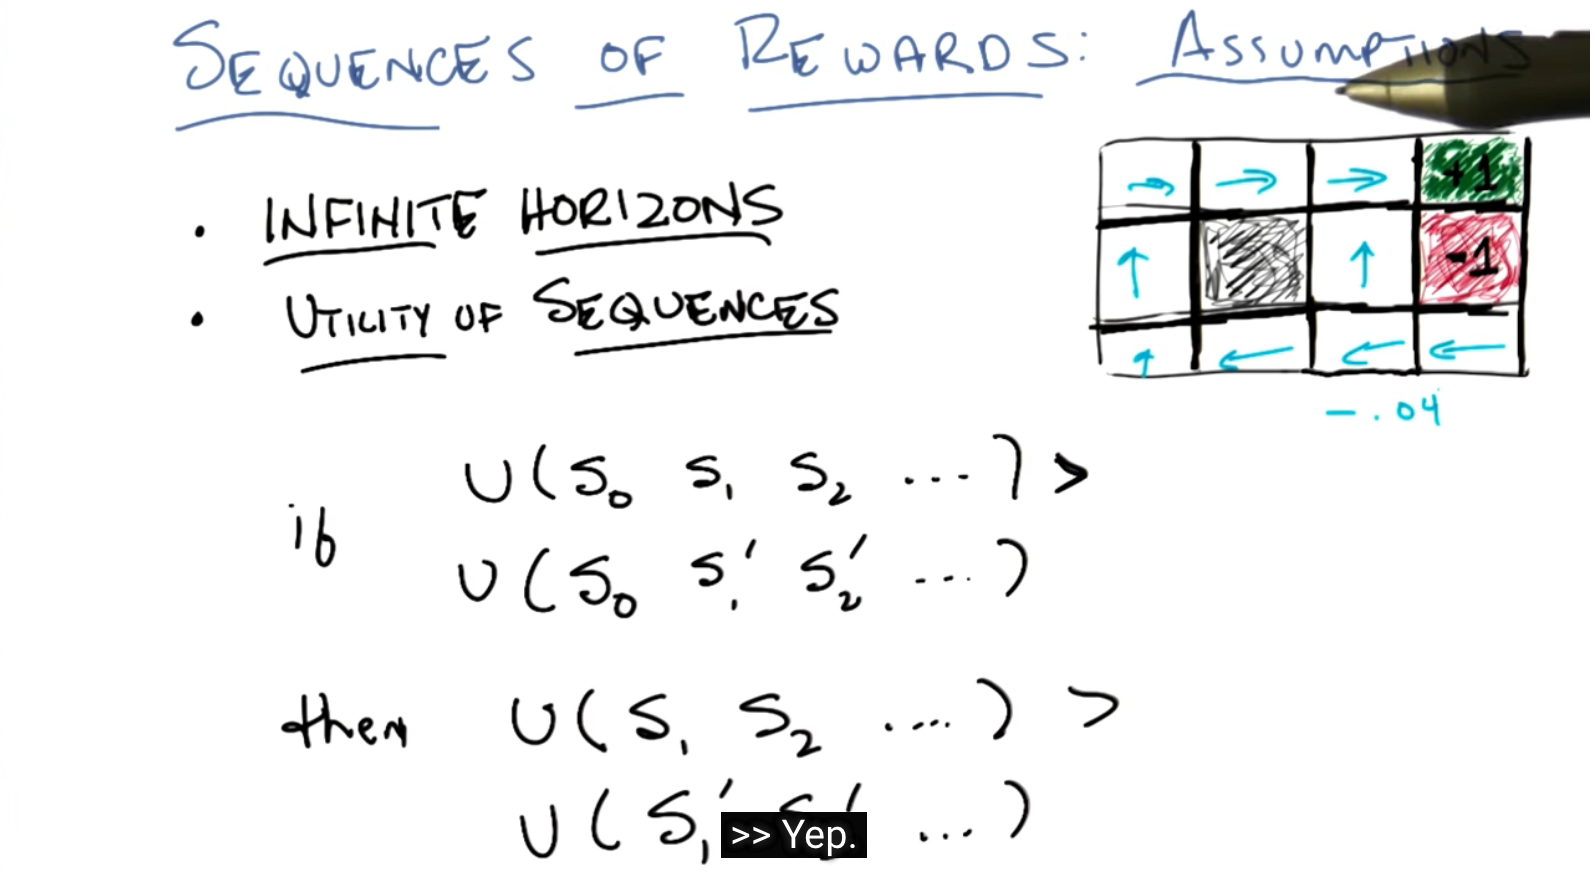 SEQUENCES OF REWARDS: ASSUMPTIONS
• INFINITE HORIZONS
• UTILITY OF SEQUENCES
+1
-1
-.04
if U(S₀ S₁ S₂ ....) >
U(S₀ S₁′ S₂′ ....)
then U(S₁ S₂ ....) >
U(S₁′ ...)
>> Yep.